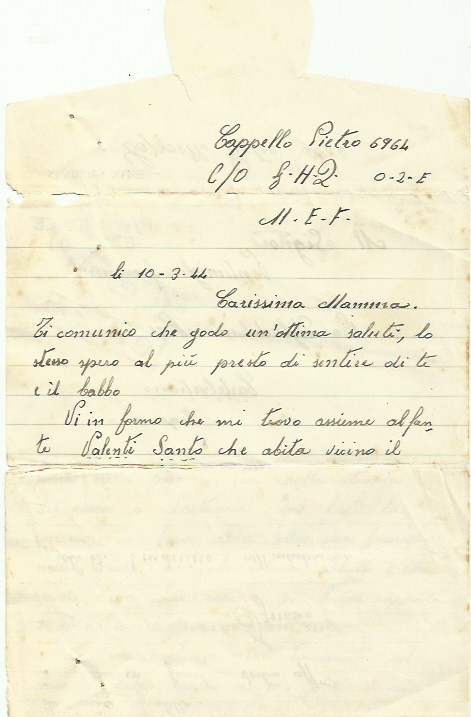 Cappello Pietro 6964
C/O G-H-Q- O-2-E
M. E. F.
li 10-3-44
Carissima Mamma.
Ti comunico che godo un'ottima saluti, lo
stesso spero al più presto di sentire di te
e il babbo
Vi in formo che mi trovo assieme al fan,
te Valenti Santo che abita vicino il